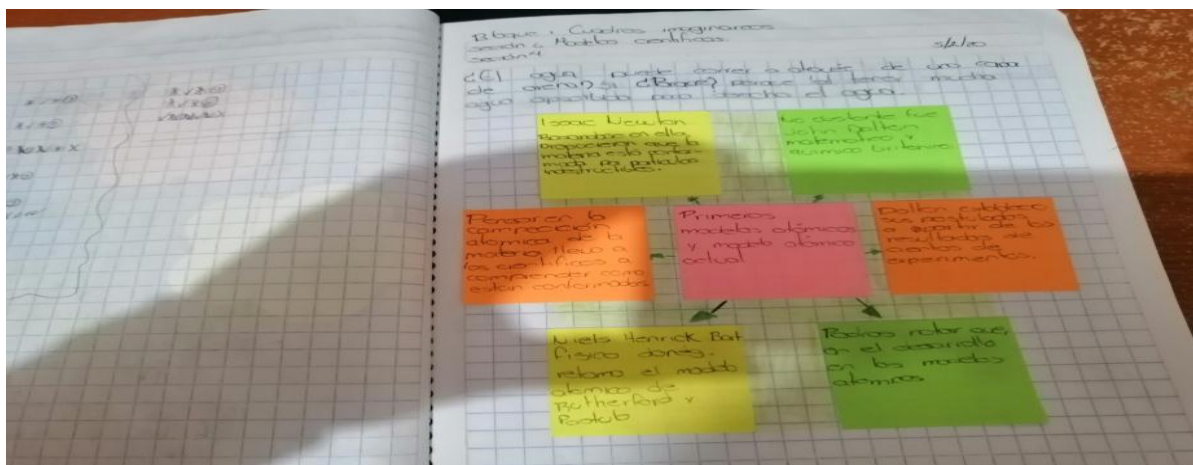 Bloque 1 Cuadros imaginarios
sección 6 Modelos científicos.
sección 4
¿El agua puede correr a de una capa
de arena? si ¿Porque? porque al tener mucha
agua para el agua.
Isaac Newton
Basandose en ella,
propocieron que la
materia está confor-
mada por particulas
No obstante fue
John Dalton
matematico y
quimico britanico
Pensar en la
composición
atomica de la
materia llevo a
los cientificos a
comprender como
estan conformados
Primeros
modelos atómicos
y modelo atómico
actual
Dalton
sus postulados
a partir de los
resultados de
cientos de
experimentos.
Niels Henrick
fisico danes.
retomo el modelo
atomico de
Rutherford y
Podras notar que,
en el desarrollo
en los modelos
atomicos